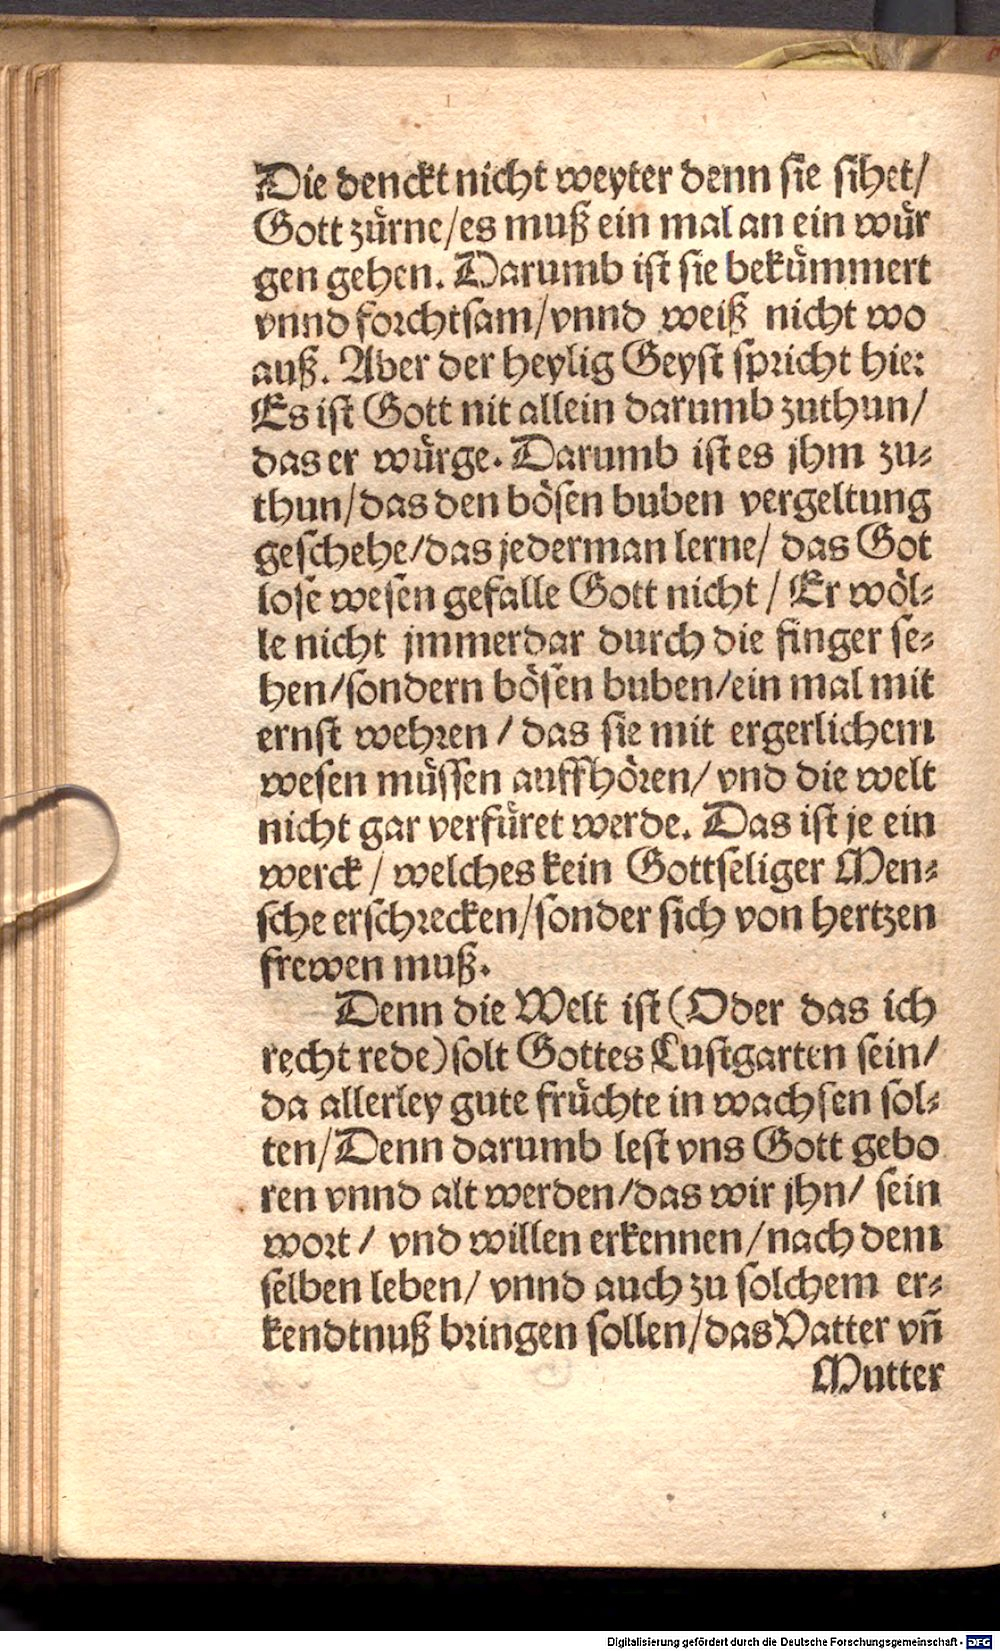 Die denckt nicht weyter denn sie sihet/
Gott zürne/es muß ein mal an ein wür
gen gehen. Darumb ist sie bekümmert
vnnd forchtsam/vnnd weiß nicht wo
auß. Aber der heylig Geyst spricht hie:
Es ist Gott nit allein darumb zuthun/
das er würge. Darumb ist es jhm zu-
thun/das den bösen buben vergeltung
geschehe/das jederman lerne/ das Got
lose wesen gefalle Gott nicht / Er wöl-
le nicht jmmerdar durch die finger se-
hen/sondern bösen buben/ein mal mit
ernst wehren / das sie mit ergerlichem
wesen müssen auffhören/ vnd die welt
nicht gar verfüret werde. Das ist je ein
werck / welches kein Gottseliger Men-
sche erschrecken/sonder sich von hertzen
frewen muß.
Denn die Welt ist (Oder das ich
recht rede) solt Gottes Lustgarten sein/
da allerley gute früchte in wachsen sol-
ten/Denn darumb lest vns Gott gebo
ren vnnd alt werden/das wir jhn/ sein
wort / vnd willen erkennen/nach dem
selben leben/ vnnd auch zu solchem er-
kendtnuß bringen sollen/das Vatter vñ
Mutter
Digitalisierung gefördert durch die Deutsche Forschungsgemeinschaft - DFG